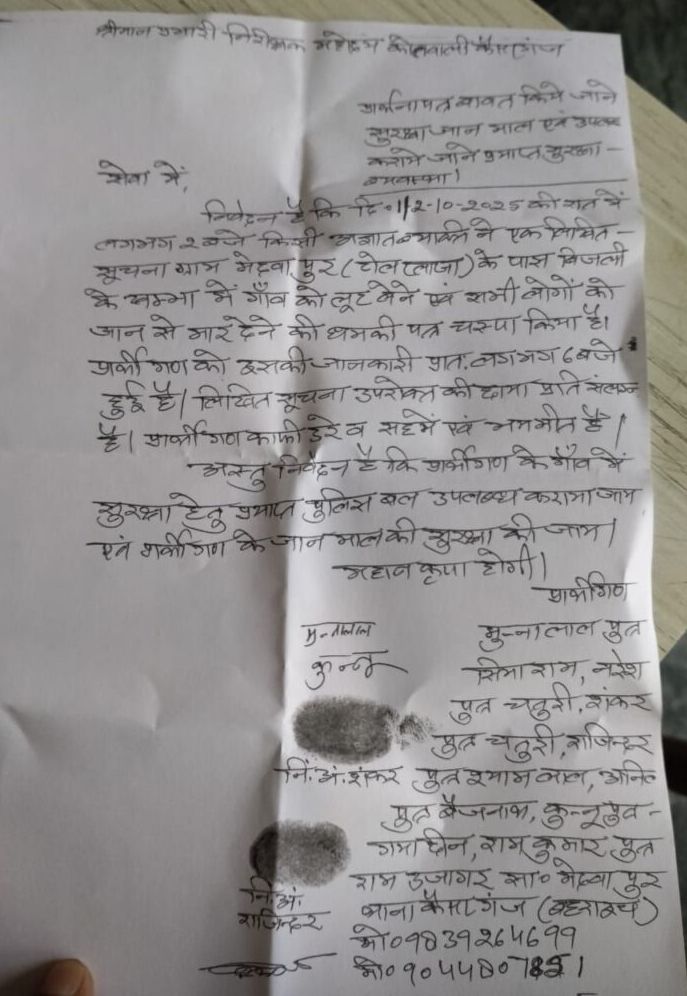 श्रीमान प्रभारी निरीक्षक महोदय कोतवाली कैसरगंज
प्रार्थनापत्र बावत किये जाने
सुरक्षा जान माल एवं उपलब्ध
कराये जाने पर्याप्त सुरक्षा -
व्यवस्था।
सेवा में,
निवेदन है कि दि० 1/2-10-2025 की रात में
लगभग 2 बजे किसी अज्ञात व्यक्ति ने एक लिखित -
सूचना ग्राम मेढवा पुर ( ) के पास बिजली
के खम्भा में गाँव को लूट लेने एवं सभी लोगों को
जान से मार देने की धमकी पत्र चस्पा किया है।
प्रार्थी गण को इसकी जानकारी प्रात: लगभग 6 बजे
हुई है। लिखित सूचना उपरोक्त की छाया प्रति संलग्न
है। प्रार्थीगण काफी डरे व सहमें एवं भयभीत है।
अस्तु निवेदन है कि प्रार्थीगण के गाँव में
सुरक्षा हेतु पर्याप्त पुलिस बल उपलब्ध कराया जाय
एवं प्रार्थीगण के जान माल की सुरक्षा की जाय।
महान कृपा होगी।
प्रार्थीगण
मुन्नालाल मुन्ना लाल पुत्र
कुन्नू सिया राम, नरेश
पुत्र चतुरी, शंकर
पुत्र चतुरी, राजिन्दर
नि. अं. शंकर पुत्र श्याम लाल, अनिल
पुत्र बैजनाथ, कुन्नू पुत्र -
गया दीन, राम कुमार पुत्र
राम उजागर सा० मेढवा पुर
नि. अं. थाना कैसरगंज (बहराइच)
राजिन्दर मो० 9839264699
मो०